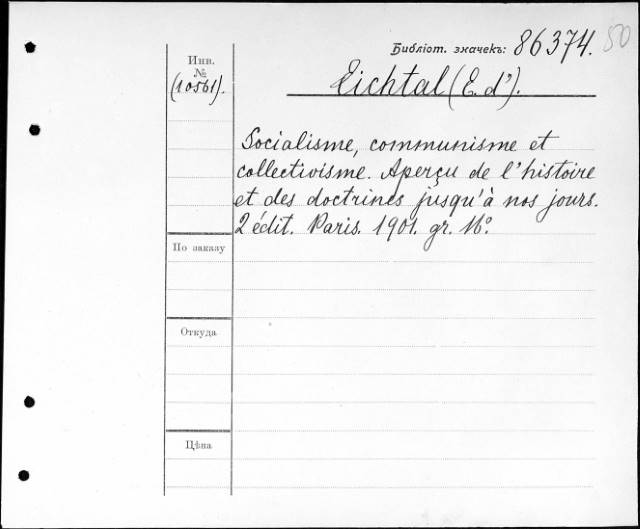 Библіот. значекъ: 86374. 50
Инв.
№
(10561).
Eichtal (E. d').
Socialisme, communisme et
collectivisme. Aperçu de l'histoire
et des doctrines jusqu'à nos jours.
2 édit. Paris. 1901. gr. 16°.
По заказу
Откуда
Цѣна